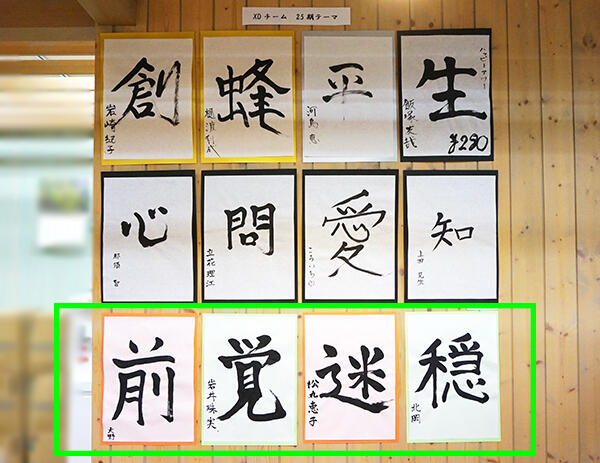 XOチーム 25期テーマ
創
岩崎紀子
蜂
平
河島恵
生
ハッピーアワー
飯塚友哉
¥280
心
那須 智
問
立花理江
愛
こういち
知
上田
前
大野
覚
岩井珠実
迷
松丸恵子
穏
北岡